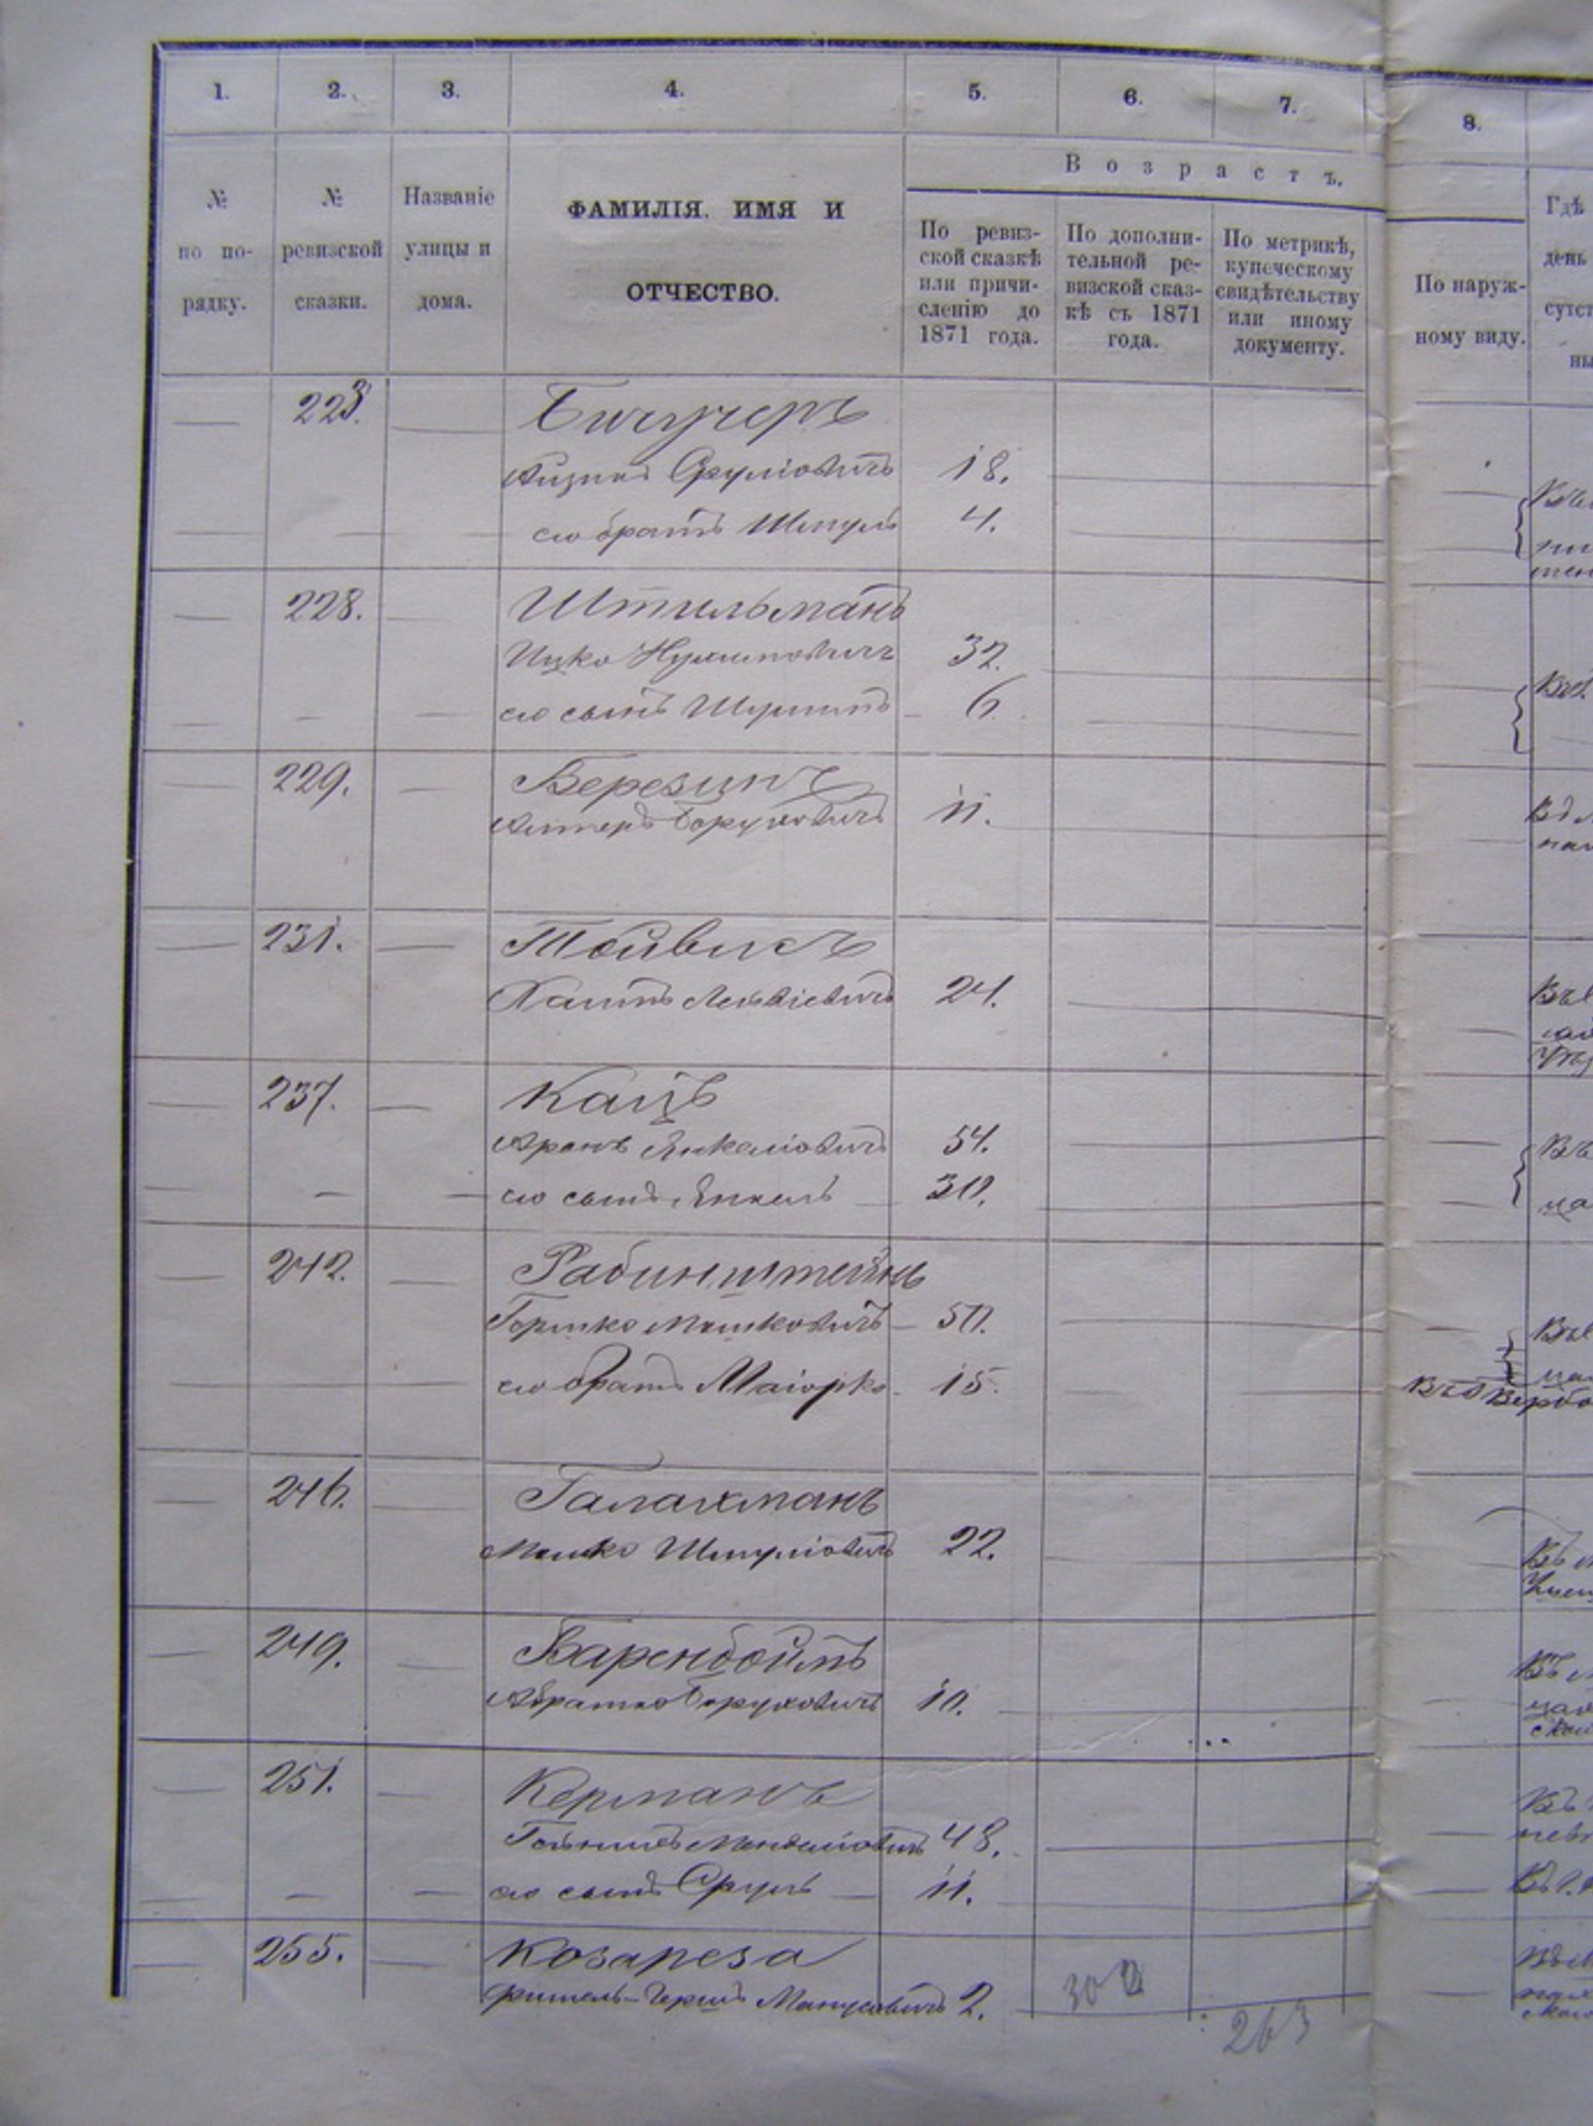 1. 2. 3. 4. 5. 6. 7. 8.
№ по порядку.
№ ревизской сказки.
Названіе улицы и дома.
ФАМИЛІЯ, ИМЯ И ОТЧЕСТВО.
Возрастъ.
По ревиз-
ской сказкѣ
или причи-
сленію до
1871 года.
По дополни-
тельной ре-
визской сказ-
кѣ съ 1871
года.
По метрикѣ,
купеческому
свидѣтельству
или иному
документу.
По наруж-
ному виду.
Гдѣ
день
сутст
223.
Сруліовичъ 18.
его братъ Шмуль 4.
228. Штильманъ
Ицко Нухимовичъ 32.
его сынъ 6.
229. Березинъ
Боруховичъ 11.
231. Тойвисъ
Хаимъ Лейвіевичъ 24.
237. Кацъ
Аронъ Янкеліовичъ 54.
его сынъ Янкель 30.
242. Рабинштейнъ
Гершко Мошковичъ 50.
его братъ Маіорко 15.
246. Галахманъ
Мошко Шмуліовичъ 22.
249. Баренбоймъ
Абрамко Боруховичъ 10.
251. Керманъ
Менделіовичъ 48.
его сынъ Сруль 11.
255. Козареза
Фишель-Гершъ 2.
263